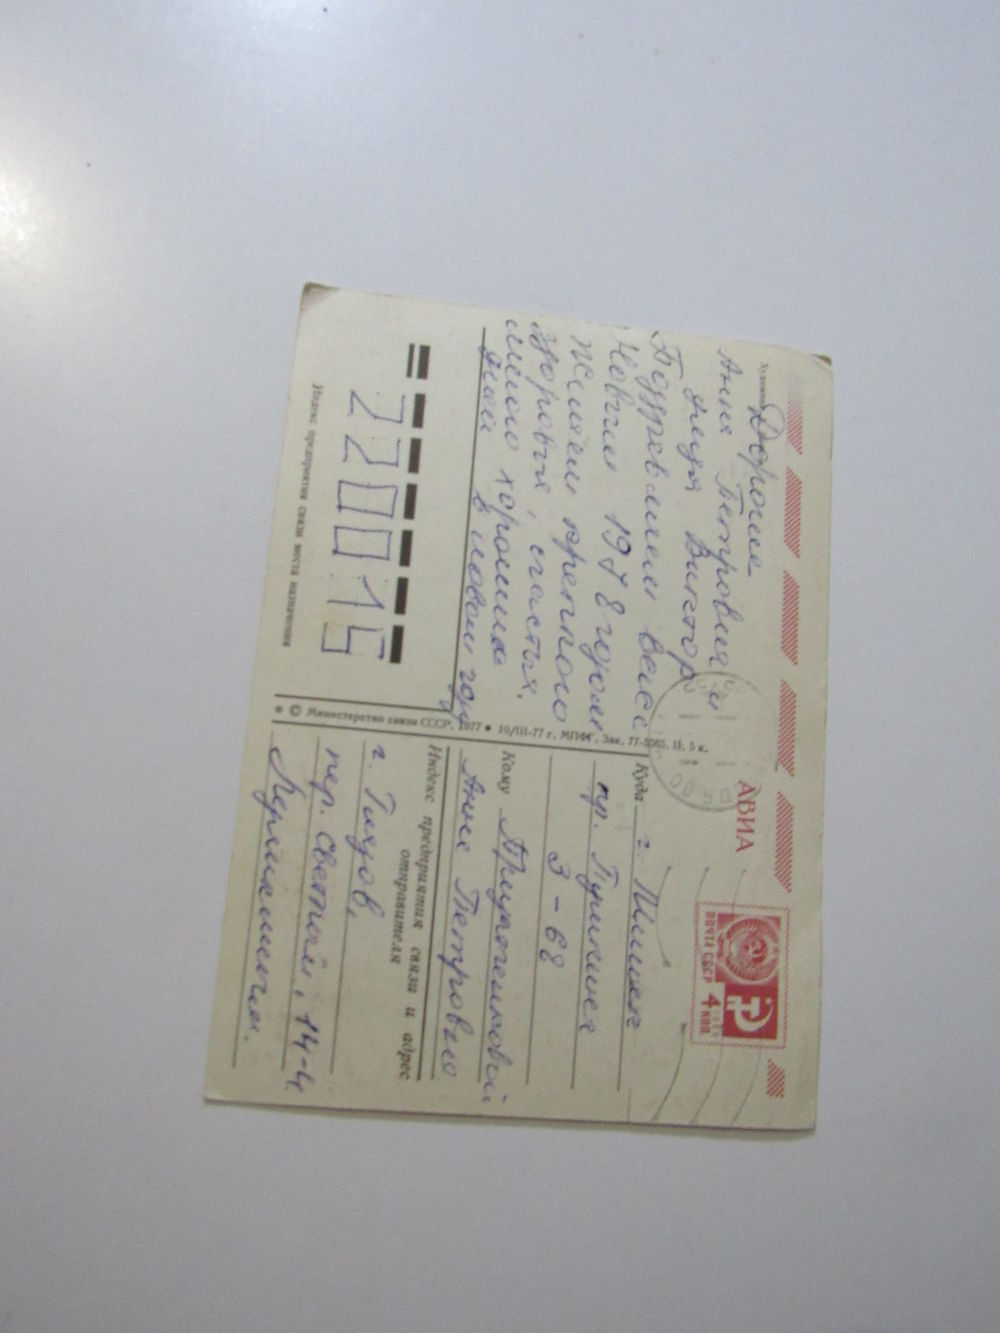 Художник
Дорогие
Анна Петровна и
Виктор
Поздравляем Вас с
Новым 1978 годом
Желаем крепкого
здоровья, счастья,
много хороших
дней в новом году
220015
Индекс предприятия связи места назначения
* © Министерство связи СССР, 1977 • 10/III-77 г. МПФГ. Зак. 77-5565. 5 к.
АВИА
ПОЧТА СССР 4 КОП.
Куда г. Минск
пр. Пушкина
3 – 68
Кому
Анне Петровне
Индекс предприятия связи и адрес
отправителя
г.
пер. Светлый, 14-4